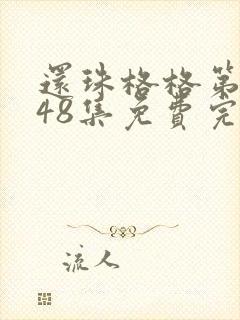 還珠格格第
48集免費完
流人